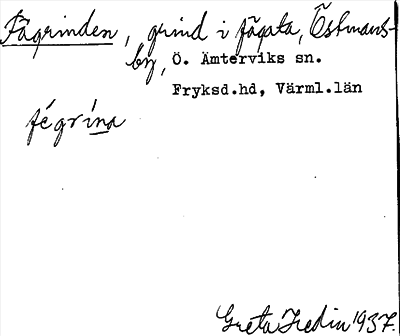 Fägrinden, grind i fägata, Östmans-
by, Ö. Ämterviks sn.
Fryksd.hd, Värml.län
fégrína
Greta Hedin 1937.